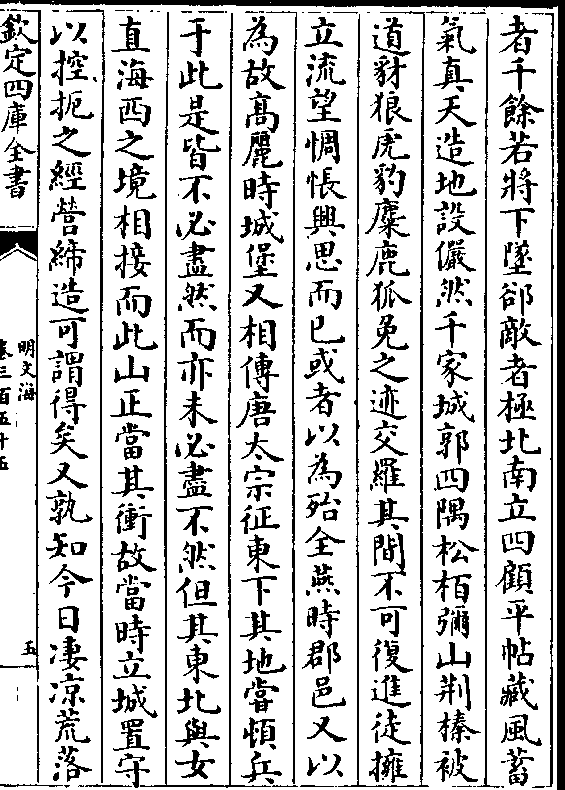 者千餘若將下墜卻敵者極北南立四顧平帖藏風蓄
氣真天造地設儼然千家城郭四隅松栢彌山荆榛被
道豺狼虎豹麋鹿狐兔之迹交羅其間不可復進徒擁
立流望惆悵興思而已或者以為殆全燕時郡邑又以
為故髙麗時城堡又相傳唐太宗征東下其地嘗頓兵
于此是皆不必盡然而亦未必盡不然但其東北與女
直海西之境相接而此山正當其衝故當時立城置守
以控扼之經營締造可謂得矣又孰知今日凄凉荒落
欽定四庫全書
明文海
卷三百五十五
五